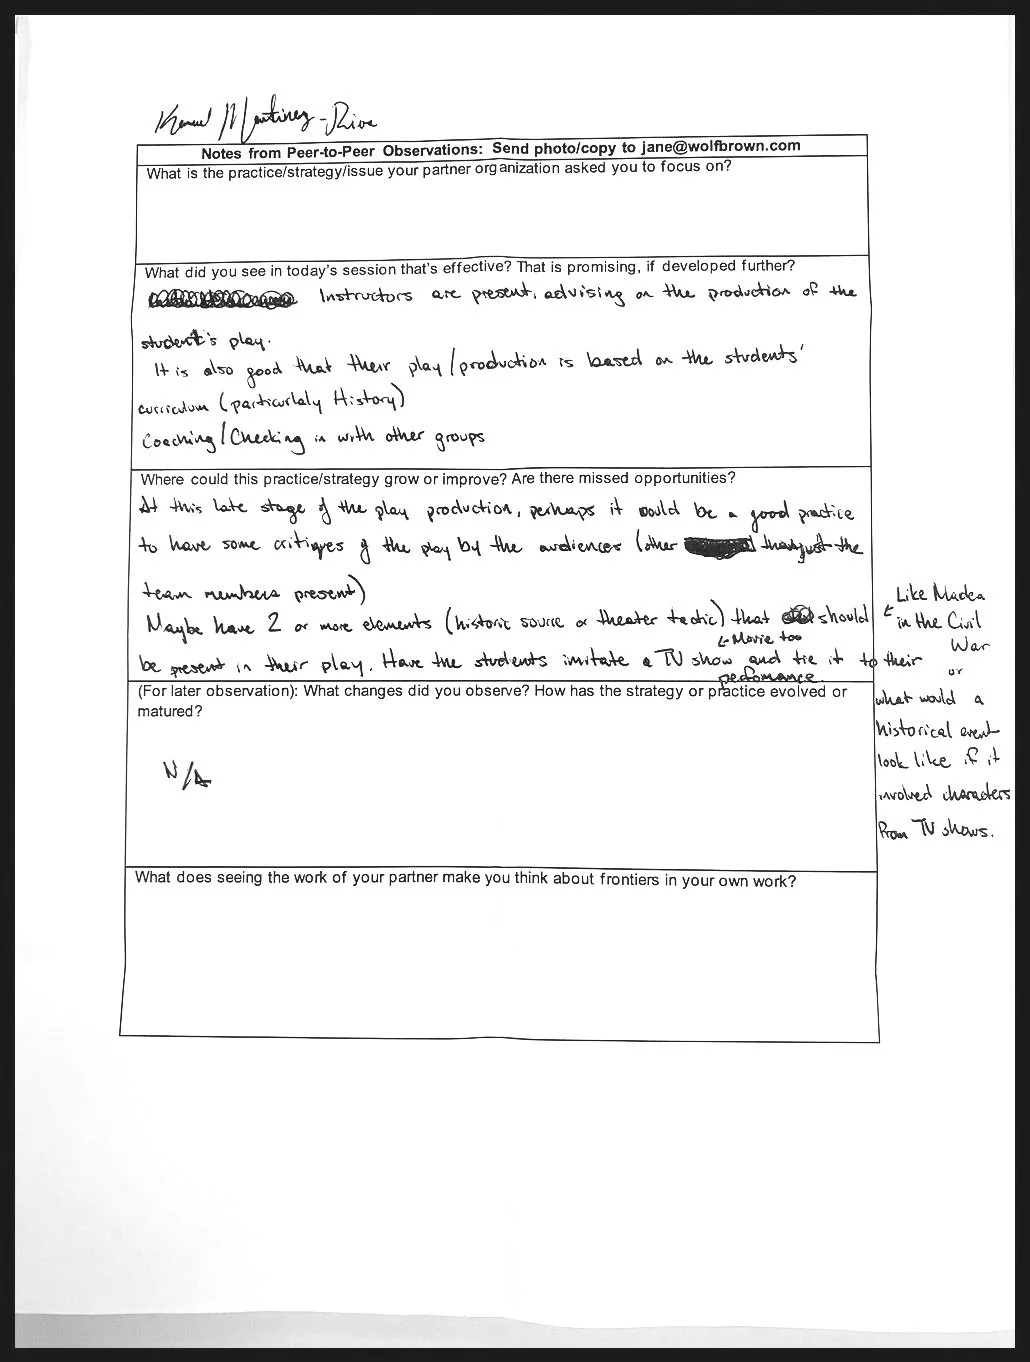 Martinez-Rive
Notes from Peer-to-Peer Observations: Send photo/copy to jane@wolfbrown.com
What is the practice/strategy/issue your partner organization asked you to focus on?
What did you see in today's session that's effective? That is promising, if developed further?
Instructors are present, advising on the production of the
student's play.
It is also good that their play/production is based on the students'
curriculum (particurlaly History)
Coaching/Checking in with other groups
Where could this practice/strategy grow or improve? Are there missed opportunities?
At this late stage of the play production, perhaps it would be a good practice
to have some critiques of the play by the audiences (other than just the
team members present)
Maybe have 2 or more elements (historic source or theater tactic) that should
← Movie too
be present in their play. Have the students imitate a TV show and tie it to their
perfomance.
Like Madea
← in the Civil
War
or
what would a
historical event
look like if it
involved characters
from TV shows.
(For later observation): What changes did you observe? How has the strategy or practice evolved or
matured?
N/A
What does seeing the work of your partner make you think about frontiers in your own work?